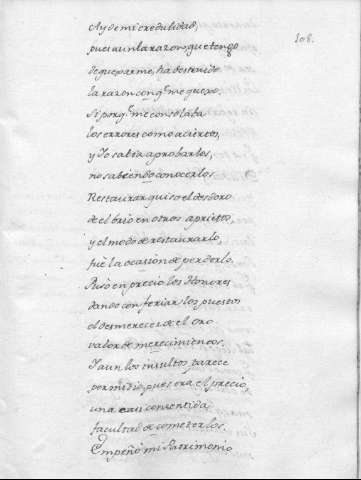 108.
Ay de mi credulidad,
pues aun la razon que tengo
de quexarme, ha destruido
la razon con q.e me quexo.
Si porq.e me consolaba
los errores como aciertos,
y Yo sabia aprobarlos,
no sabiendo conocerlos.
Restaurar quiso el desdoro
de el brio en otros aprietos,
y el modo de restaurarlo,
fué la ocasion de perderlo.
Puso en precio los Honores
dando con feriar los puestos
al desmerecer de el Oro
valor de merecimientos.
Y aun los insultos parece
permidio, pues era el precio,
una casi consentida
facultad de cometerlos.
Empeñó mi Patrimonio